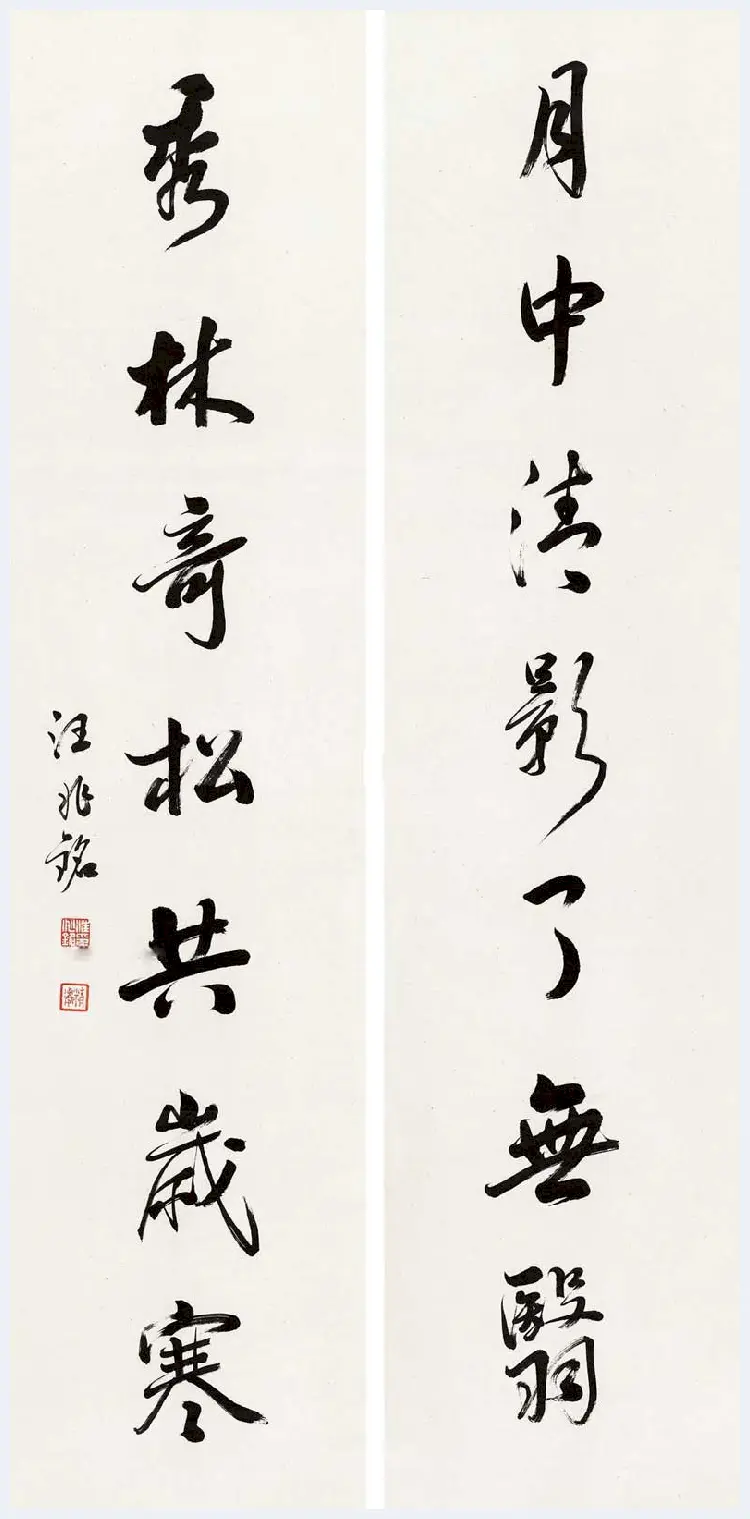 月中清影了無翳
秀林奇松共歲寒
汪兆銘